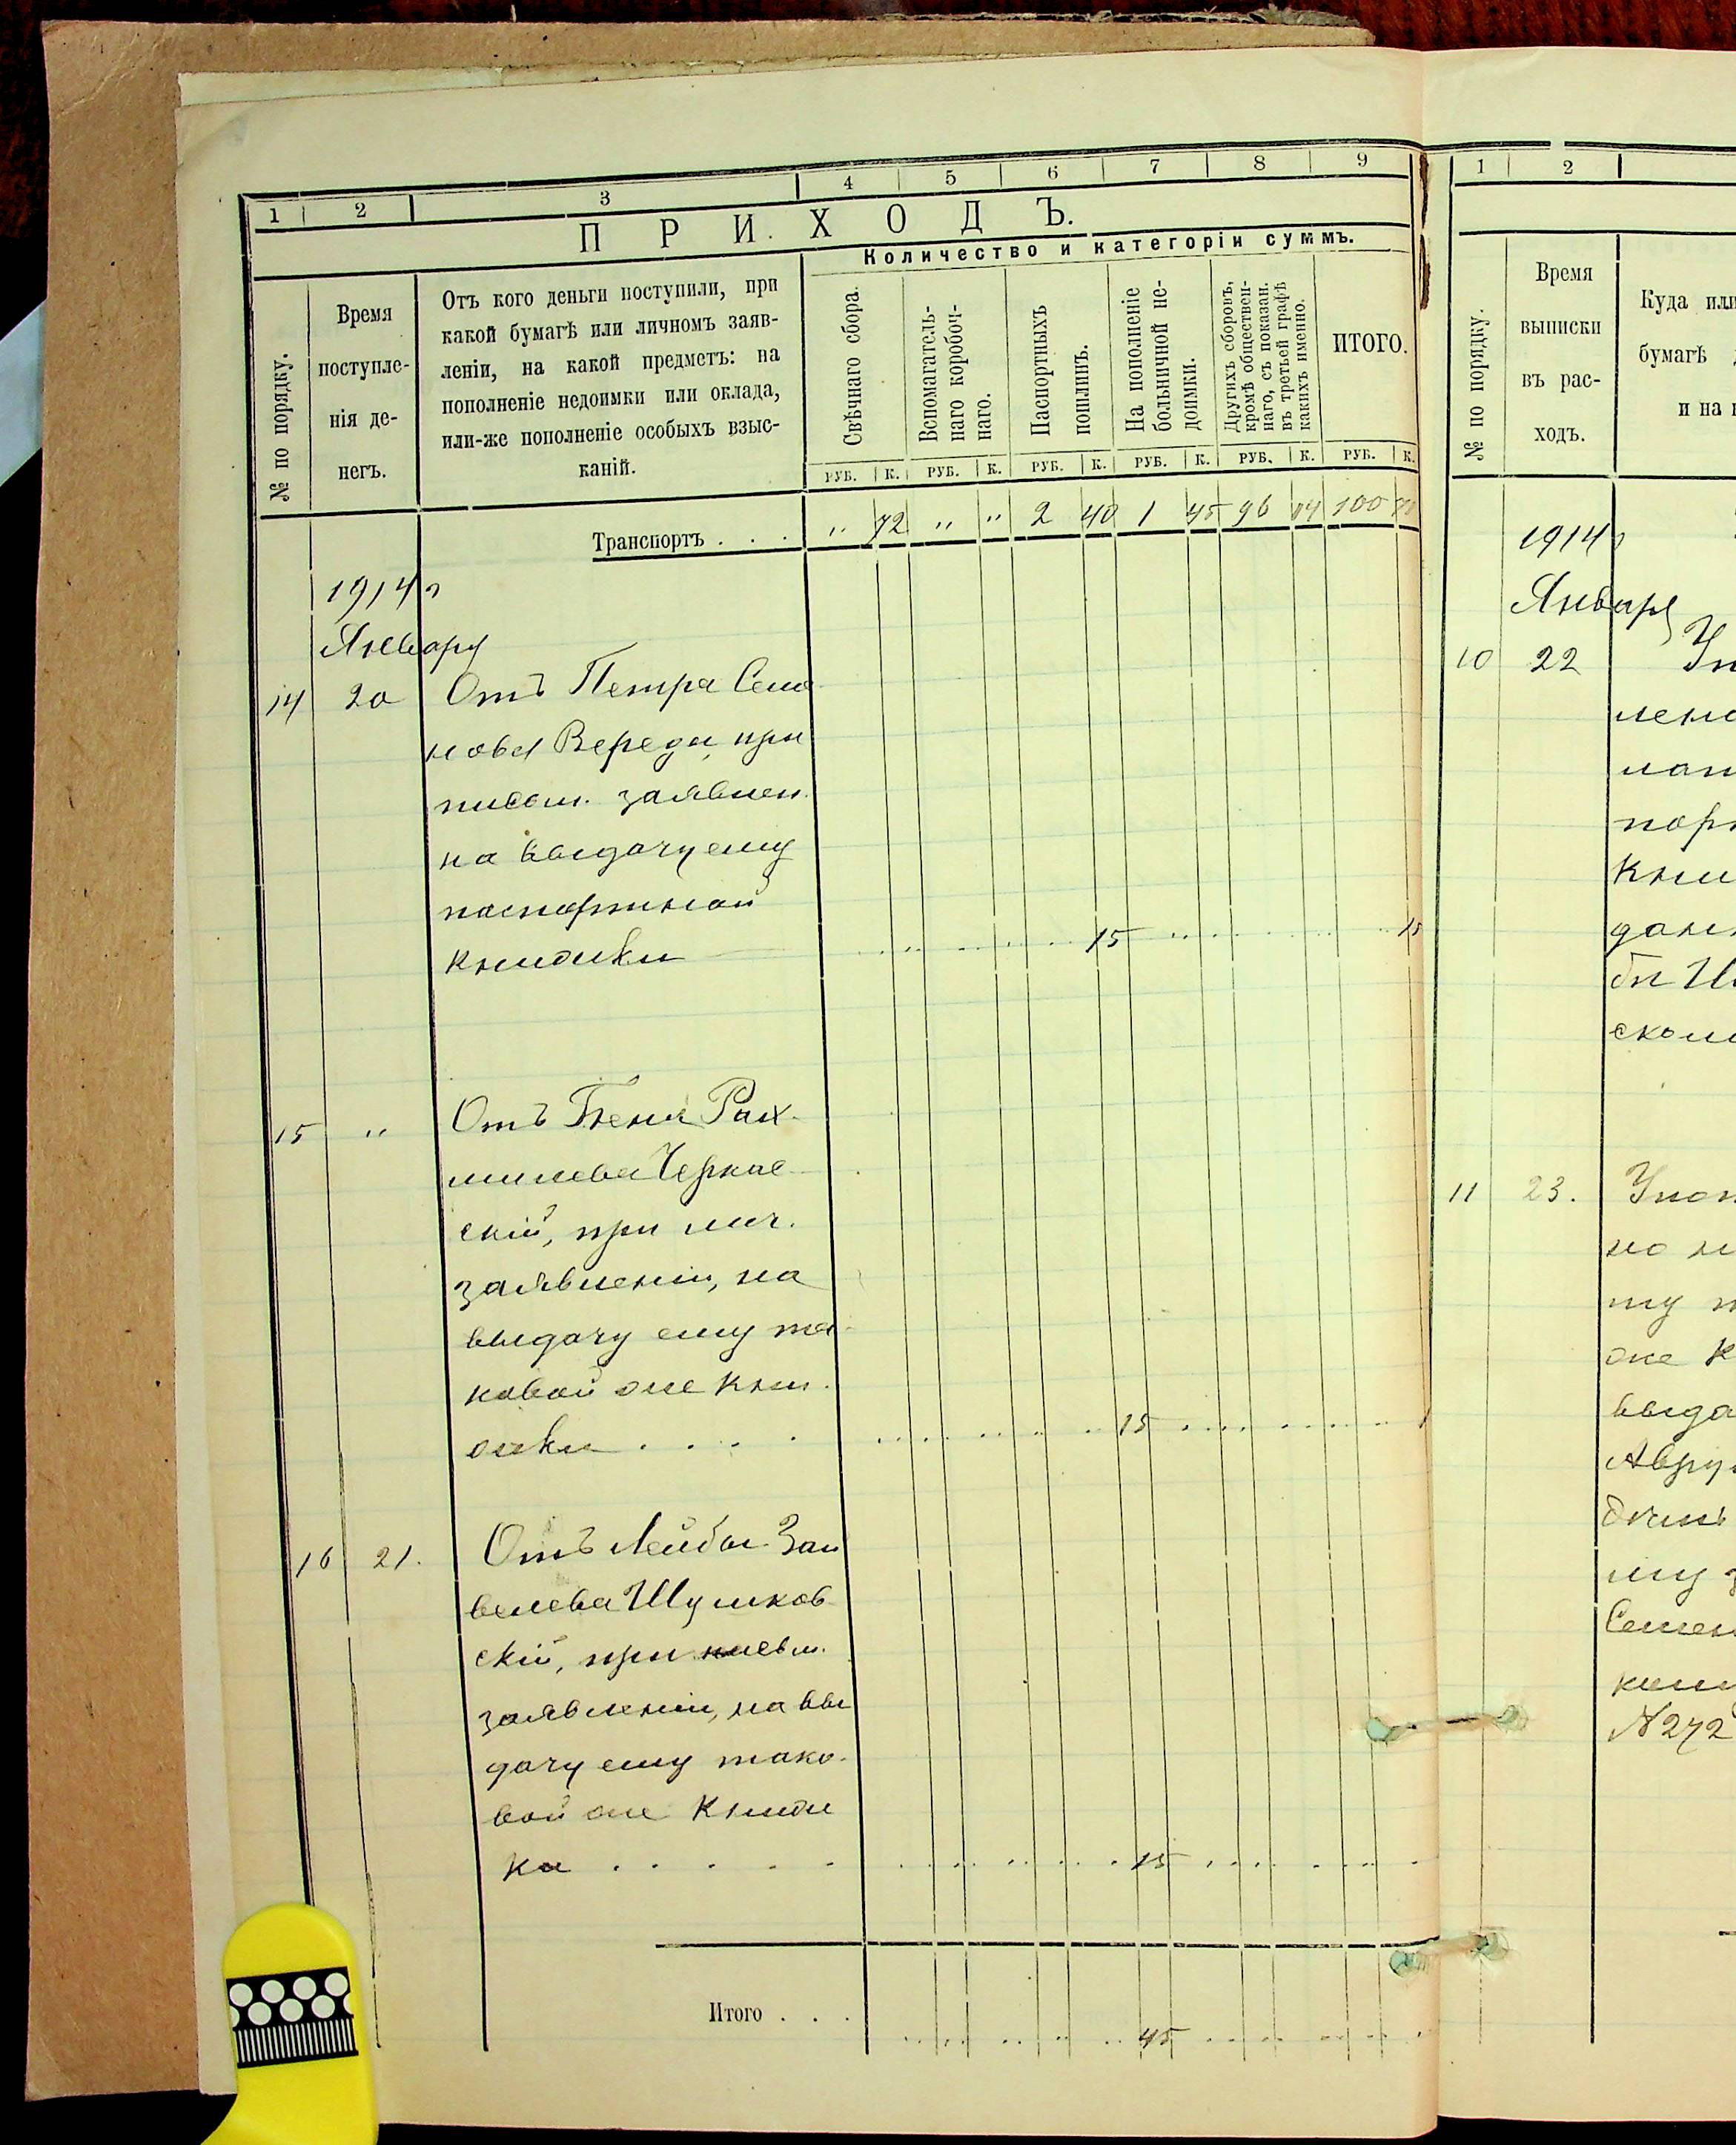 1 2 3 4 5 6 7 8 9
П Р И Х О Д Ъ.
№ по порядку.
Время
поступле-
нія де-
негъ.
Отъ кого деньги поступили, при
какой бумагѣ или личномъ заяв-
леніи, на какой предметъ: на
пополненіе недоимки или оклада,
или-же пополненіе особыхъ взыс-
каній.
Количество и категоріи суммъ.
Свѣчнаго сбора.
Вспомагатель-
наго коробоч-
наго.
Паспортныхъ
пошлинъ.
На пополненіе
больничной не-
доимки.
Другихъ сборовъ,
кромѣ обществен-
наго, съ показан.
въ третьей графѣ
какихъ именно.
ИТОГО.
РУБ. К. РУБ. К. РУБ. К. РУБ. К. РУБ. К. РУБ. К.
Транспортъ . . . " 72 " " 2 40 1 45 96 100
1914 г
Январь
14 20 Отъ Петра Семе
нова Вереды, при
письм. заявлен.
на выдачу ему
паспортной
книжки 15 15
15 " Отъ Рах-
милева Черкас-
скій, при лич.
заявленіи, на
выдачу ему та-
ковой же кни-
жки . . . . 15
16 21. Отъ Лейбы Зан
велева Шумков-
скій, при письм.
заявленіи, на вы
дачу ему тако-
вой же книж
ки . . . . . 15
Итого . . . 45
1 2
№ по порядку.
Время
выписки
въ рас-
ходъ.
Куда или
бумагѣ
и на
1914 г
Января
10 22 Уп
лено
пор
Кни
дан
скол
11 23. Упо
но
му
же к
выда
Авру
му
Семен
N 272